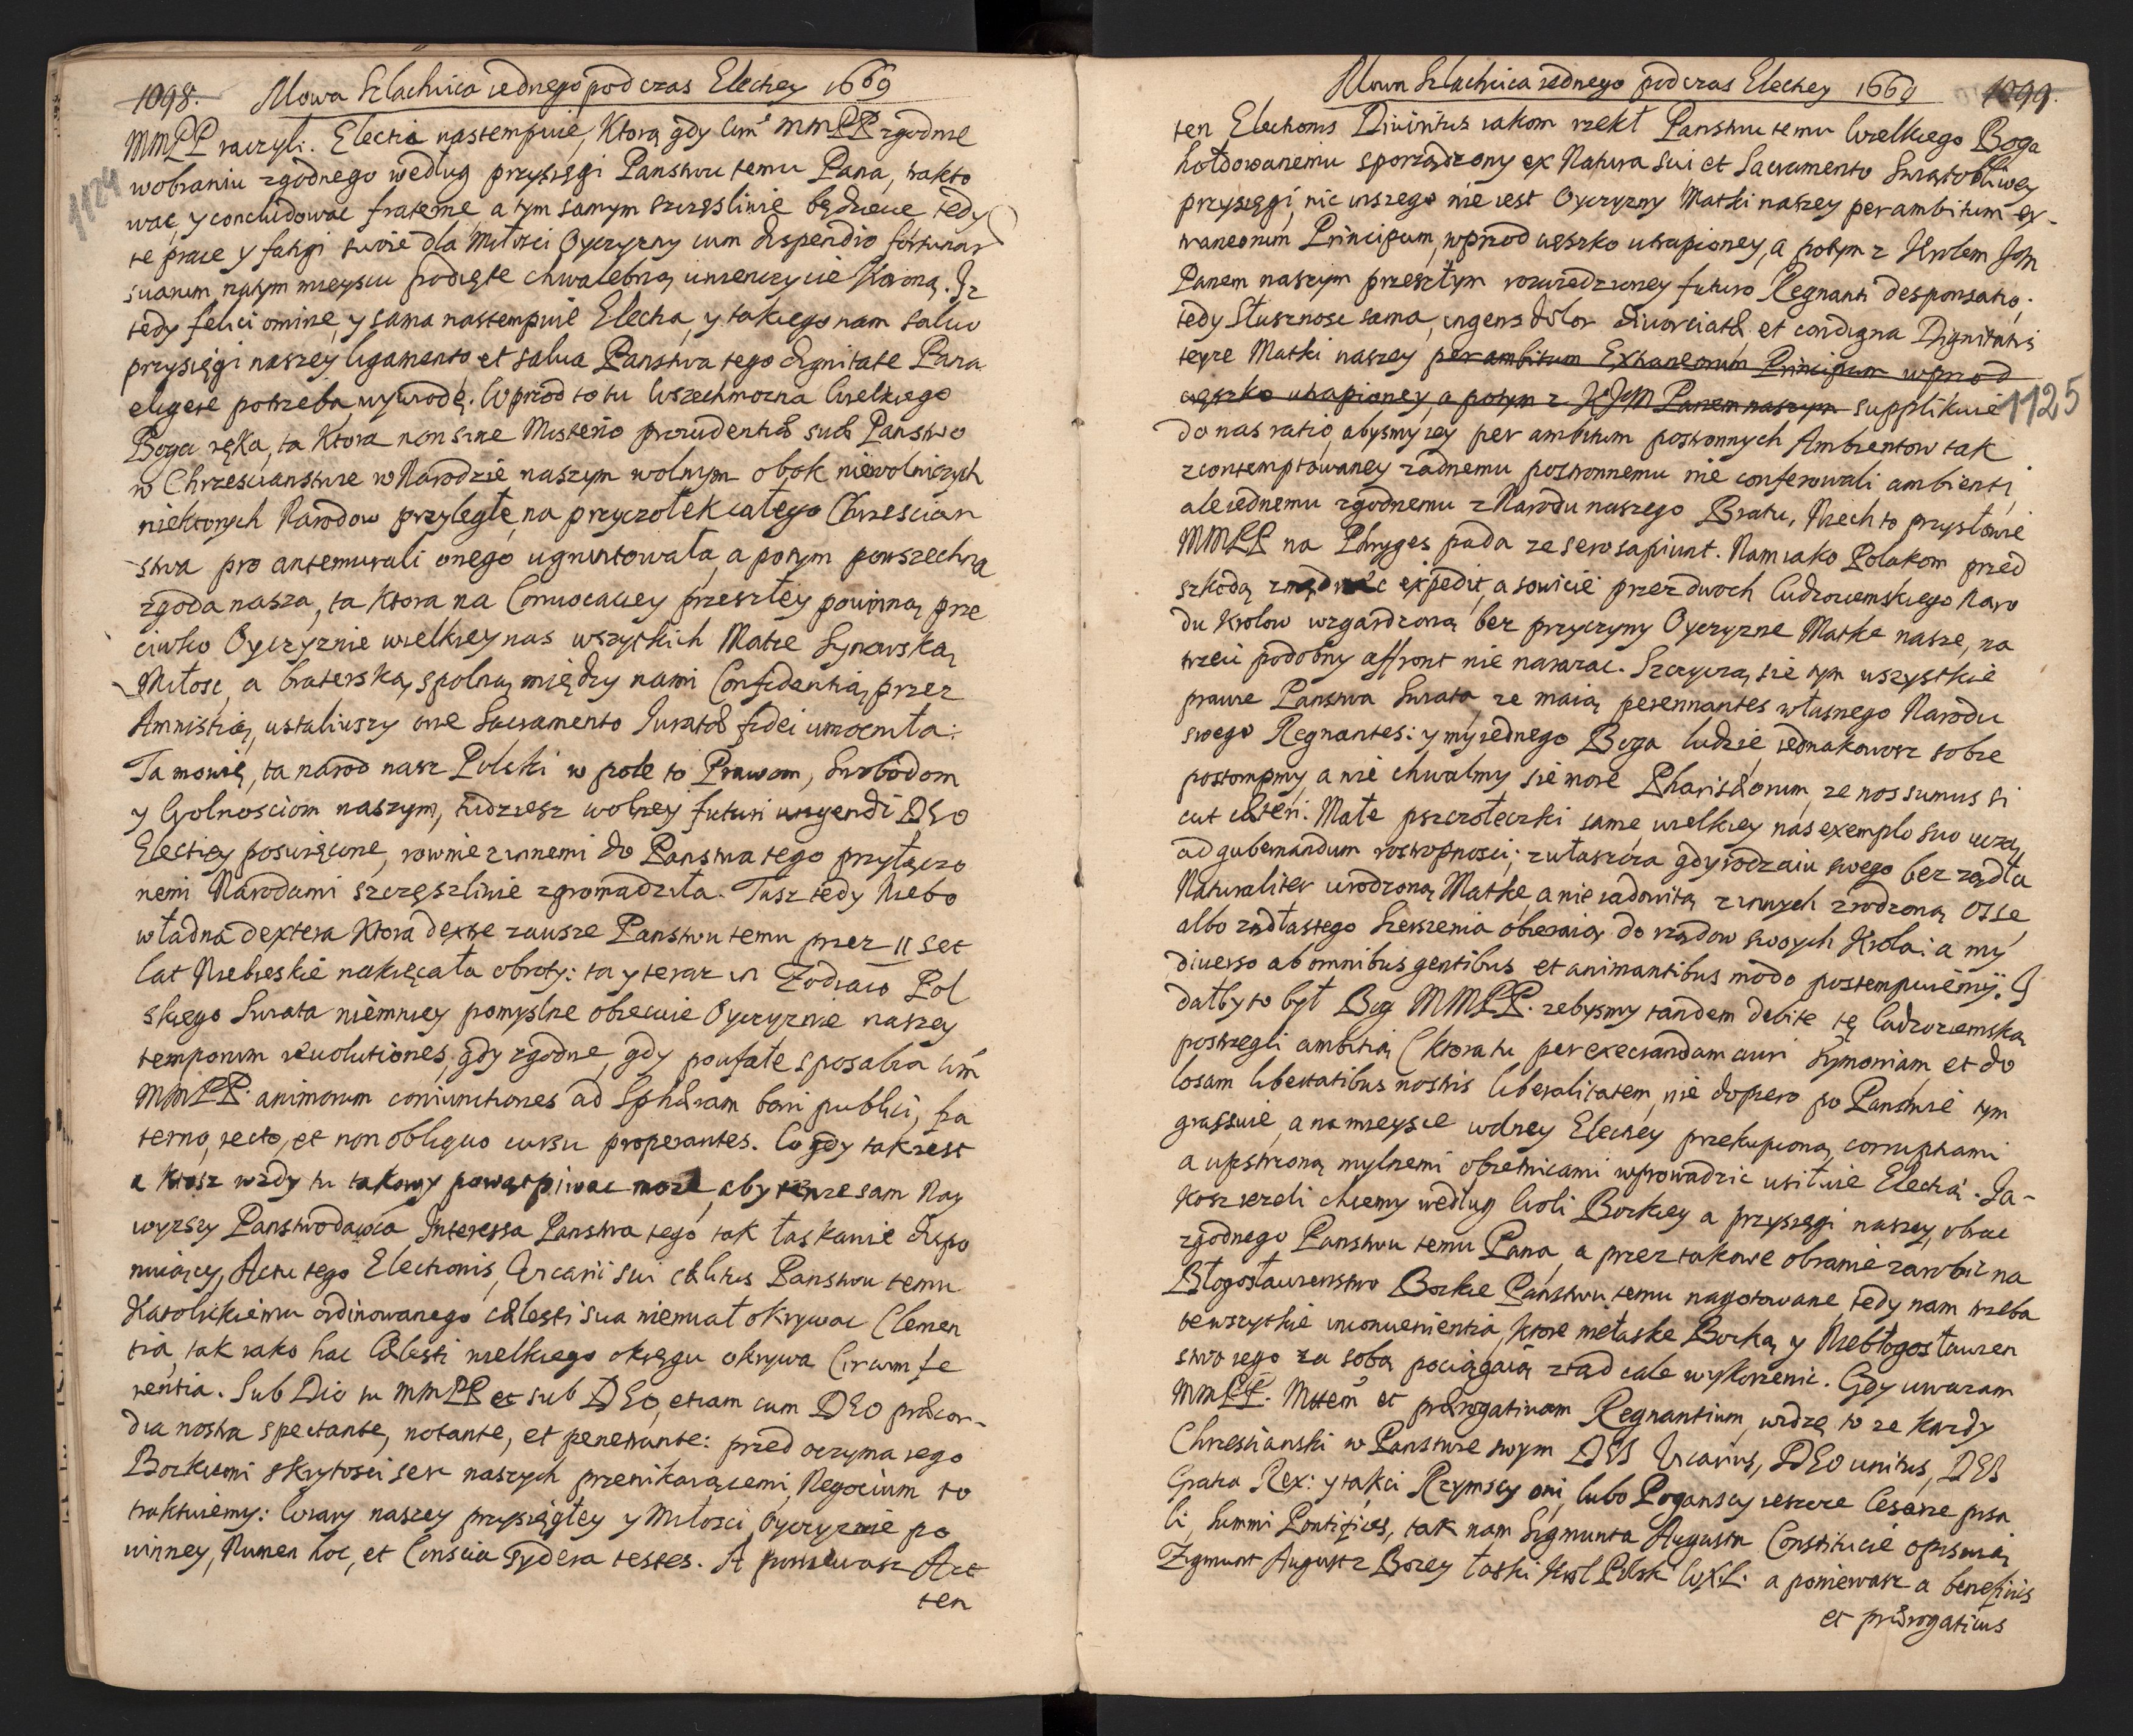 1098. Mowa Szlachcica iednego podczas Elechey 1669
1124
MMPP raczyli. Electia nastempuie, Ktorą gdy MMPP zgodnie
wobraniu zgodnego według przysięgi Panstwu temu Pana, trakto
wac, y concludowac fraterne, a tym samym szczęsliwie będziecie tedy
te prace y fatigi swoie dla Miłosci Oyczyzny cum dispendio fortunar
suarum natym mieyscu podięte chwalebną uwienczycie Koroną. Iz
tedy felici omine, y sama nastempuie Electia, y takiego nam saluo
przysięgi naszey ligamento et salua Panstwa tego dignitate Pana
eligere potrzeba wywodę. Wprzod to tu Wszechmocna Wielkiego
Boga ręka, ta Ktora non sine Misterio prouidentiæ suæ Panstwo
w Chrzescianstwie w Narodzie naszym wolnym obok niewolniczych
niektorych Narodow przyległe, na przyczołek całego Chrzescian
stwa pro antemurali onego ugruntowała, a potym powszechna
zgoda nasza, ta Ktora na Conuocatiey przeszłey powinną prze
ciwko Oyczyznie wielkiey nas wszytkich Matce Synowską
Miłosc, a braterską spolną między nami Confidentią przez
Amnistią, ustaliwszy one Sacramento Iuratæ fidei umocniła:
Ta mowię, ta narod nasz Polski w pole to Prawom, Swobodom
y Wolnosciom naszym, tudziesz wolney futuri ungendi DEO
Electiey poswięcone, rownie z innemi do Panstwa tego przyłączo
nemi Narodami szczęszliwie zgromadziła. Tasz tedy Niebo
władna dextera Ktora dextre zawsze Panstwu temu przez 11 set
lat Niebieskie nakręcała obroty: ta y teraz in Zodiaco Pol
skiego Swiata niemniey pomyslne obiecuie Oyczyznie naszey
temporum reuolutiones, gdy zgodne, gdy poufałe sposabia
MMPP. animorum coniunctiones ad Sphæram boni publici, fra
terno, recto, et non obliquo cursu properantes. Co gdy tak iest
a Ktosz wzdy tu takowy powątpiwac moze, aby tenze sam Nay
wyzszy Panstwodawca Interessa Panstwa tego tak łaskawie dispo
nuiący, Actu tego Electionis, Vicarii sui cælitus Panstwu temu
Katolickiemu ordinowanego cælesti sua niemiał okrywac Clemen
tia, tak iako hac Cælesti wielkiego okręgu okrywa Circumfe
rentia. Sub Dio tu MMPP et sub DEO, etiam cum DEO præcor-
dia nostra spectante, notante, et penetrante: przed oczyma iego
Boskiemi skrytosci serc naszych przenikaiącemi, Negocium to
traktuiemy: Wiary naszey przysięgłey y Miłosci Oyczyznie po
winney, Numen hoc, et Conscia Sydera testes. A poniewasz Act
ten
Mowa Szlachcica iednego podczas Elechey 1669 1099.
ten Electionis Diuinitus iakom rzekł Panstwu temu Wielkiego Boga
hołdowanemu sporządzony ex Natura sui et Sacramento Swiątobliwey
przysięgi, nic inszego nie iest Oyczyzny Matki naszey per ambitum ex-
traneorum Principum, wprzod cięszko utrapioney, a potym z Krolem Jm
Panem naszym przeszłym rozwiedzioney futuro Regnanti desponsatio:
tedy Słusznosc sama, ingens dolor diuorciatæ, et condigna Dignitatis
teyze Matki naszey per ambitum Extraneorum Principum wprzod
cięszko utrapioney, a potym z KJM Panem naszym supplikuie 1125
do nas ratio, abysmy iey per ambitum postronnych Ambientow tak
zcontemptowaney zadnemu postronnemu nie conferowali ambienti,
ale iednemu zgodnemu z Narodu naszego Bratu, Niech to przysłowie
MMPP na Phryges pada ze sero sapiunt. Nam iako Polakom przed
szkodą expedit, a sowicie przez dwoch Cudzoziemskiego Naro
du Krolow wzgardzoną bez przyczyny Oyczyzne Matke nasze, na
trzeci podobny affront nie narazac. Szczyczą sie tym wszystkie
prawie Panstwa Swiata, ze maią perennantes własnego Narodu
swego Regnantes: y my iednego Boga ludzie, iednakowosz sobie
postompmy, a nie chwalmy sie more Phariseorum, ze nos sumus si
cut cæteri. Małe pszczołeczki same wielkiey nas exemplo suo uczą
ad gubernandum rostropnosci; zwłaszcza gdy rodzaiu swego bez ządła
Naturaliter urodzoną Matkę, a nie iadowitą z innych zrodzoną Osse
albo ządłastego Szerszenia obieraią do rządow swoych Krola: a my
diuerso ab omnibus gentibus et animantibus modo postempuiemy. I
dałby to był Bog MMPP. zebysmy tandem debite tę Cudzoziemską
postrzegli ambitią (ktora tu per execrandam auri Symoniam, et do
losam libertatibus nostris liberalitatem, nie dopiero po Panstwie tym
grassuie, a na mieysce wolney Elechey przekupioną corruptiami
a upstrzoną mylnemi obietnicami wprowadzic usiłuie Electią. Ja-
kosz iezeli chcemy według Woli Boskiey a przysięgi naszey, obrac
zgodnego Panstwu temu Pana, a przez takowe obranie zarobic na
Błogosławienstwo Boskie Panstwu temu nagotowane, tedy nam trzeba
te wszytkie inconuenientia, ktore niełaske Boską y Niebłogosławien
stwo iego za sobą pociągaią ztąd cale wykorzenic. Gdy uwazam
MMPP. et prærogatiuam Regnantium, widzę to ze kazdy
Chrzescianski w Panstwie swym DEI Vicarius, DEO unitus, DEI
Gratia Rex: y tak ci Rzymscy oni, lubo Poganscy ieszcze Cesarze pisa
li, Summi Pontifices, tak nam Sigmunta Augusta Constitucie opisuią
Zygmunt August z Bozey łaski Krol Polski WXL: a poniewasz a beneficiis
et prærogatiuis